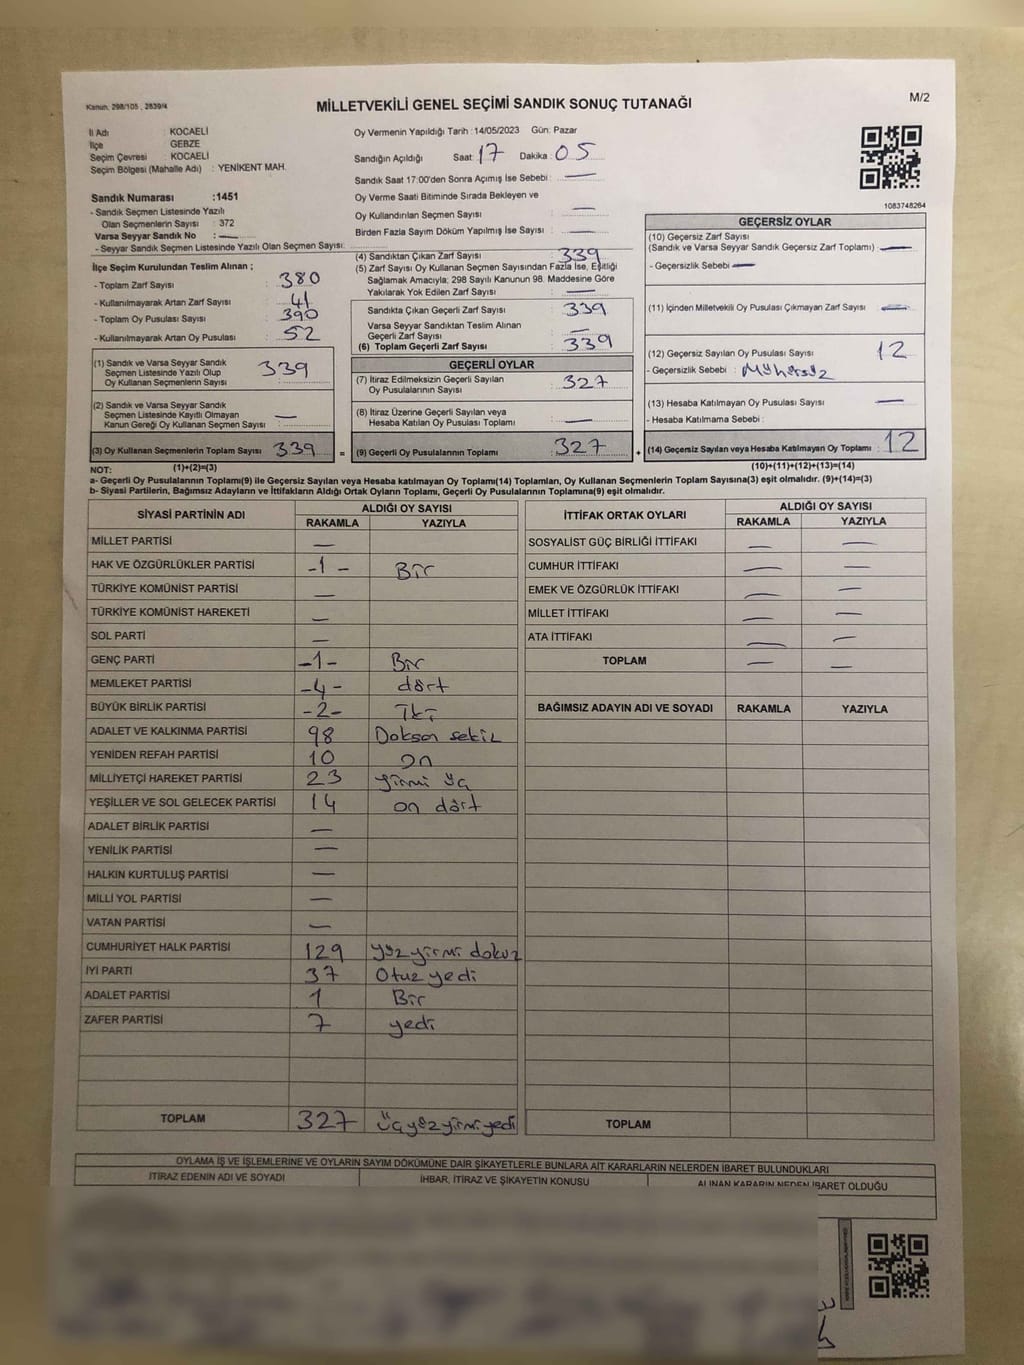 Kanun, 298/105 , 2839/4
MİLLETVEKİLİ GENEL SEÇİMİ SANDIK SONUÇ TUTANAĞI
M/2
İl Adı : KOCAELİ
İlçe : GEBZE
Seçim Çevresi : KOCAELİ
Seçim Bölgesi (Mahalle Adı) : YENİKENT MAH.
Oy Vermenin Yapıldığı Tarih :14/05/2023 Gün: Pazar
Sandığın Açıldığı Saat: 17 Dakika : 05
Sandık Saat 17:00'den Sonra Açımış İse Sebebi : —
Oy Verme Saati Bitiminde Sırada Bekleyen ve
Oy Kullandırılan Seçmen Sayısı : —
Birden Fazla Sayım Döküm Yapılmış İse Sayısı : —
1083748264
Sandık Numarası :1451
- Sandık Seçmen Listesinde Yazılı
Olan Seçmenlerin Sayısı : 372
Varsa Seyyar Sandık No : —
- Seyyar Sandık Seçmen Listesinde Yazılı Olan Seçmen Sayısı:
İlçe Seçim Kurulundan Teslim Alınan ;
- Toplam Zarf Sayısı : 380
- Kullanılmayarak Artan Zarf Sayısı : 41
- Toplam Oy Pusulası Sayısı : 390
- Kullanılmayarak Artan Oy Pusulası : 52
(1) Sandık ve Varsa Seyyar Sandık
Seçmen Listesinde Yazılı Olup
Oy Kullanan Seçmenlerin Sayısı : 339
(2) Sandık ve Varsa Seyyar Sandık
Seçmen Listesinde Kayıtlı Olmayan
Kanun Gereği Oy Kullanan Seçmen Sayısı : —
(3) Oy Kullanan Seçmenlerin Toplam Sayısı : 339 =
(4) Sandıktan Çıkan Zarf Sayısı : 339
(5) Zarf Sayısı Oy Kullanan Seçmen Sayısından Fazla İse, Eşitliği
Sağlamak Amacıyla; 298 Sayılı Kanunun 98. Maddesine Göre
Yakılarak Yok Edilen Zarf Sayısı : —
Sandıkta Çıkan Geçerli Zarf Sayısı : 339
Varsa Seyyar Sandıktan Teslim Alınan
Geçerli Zarf Sayısı : —
(6) Toplam Geçerli Zarf Sayısı : 339
GEÇERLİ OYLAR
(7) İtiraz Edilmeksizin Geçerli Sayılan
Oy Pusulalarının Sayısı : 327
(8) İtiraz Üzerine Geçerli Sayılan veya
Hesaba Katılan Oy Pusulası Toplamı : —
(9) Geçerli Oy Pusulalarının Toplamı : 327 +
GEÇERSİZ OYLAR
(10) Geçersiz Zarf Sayısı
(Sandık ve Varsa Seyyar Sandık Geçersiz Zarf Toplamı) : —
- Geçersizlik Sebebi : —
(11) İçinden Milletvekili Oy Pusulası Çıkmayan Zarf Sayısı : —
(12) Geçersiz Sayılan Oy Pusulası Sayısı : 12
- Geçersizlik Sebebi : Mühürsüz
(13) Hesaba Katılmayan Oy Pusulası Sayısı : —
- Hesaba Katılmama Sebebi :
(14) Geçersiz Sayılan veya Hesaba Katılmayan Oy Toplamı : 12
NOT: (1)+(2)=(3) (10)+(11)+(12)+(13)=(14)
a- Geçerli Oy Pusulalarının Toplamı(9) ile Geçersiz Sayılan veya Hesaba katılmayan Oy Toplamı(14) Toplamları, Oy Kullanan Seçmenlerin Toplam Sayısına(3) eşit olmalıdır. (9)+(14)=(3)
b- Siyasi Partilerin, Bağımsız Adayların ve İttifakların Aldığı Ortak Oyların Toplamı, Geçerli Oy Pusulalarının Toplamına(9) eşit olmalıdır.
SİYASİ PARTİNİN ADI ALDIĞI OY SAYISI
RAKAMLA YAZIYLA
MİLLET PARTİSİ —
HAK VE ÖZGÜRLÜKLER PARTİSİ -1- Bir
TÜRKİYE KOMÜNİST PARTİSİ —
TÜRKİYE KOMÜNİST HAREKETİ —
SOL PARTİ —
GENÇ PARTİ -1- Bir
MEMLEKET PARTİSİ -4- dört
BÜYÜK BİRLİK PARTİSİ -2- İki
ADALET VE KALKINMA PARTİSİ 98 Doksan sekiz
YENİDEN REFAH PARTİSİ 10 on
MİLLİYETÇİ HAREKET PARTİSİ 23 yirmi üç
YEŞİLLER VE SOL GELECEK PARTİSİ 14 on dört
ADALET BİRLİK PARTİSİ —
YENİLİK PARTİSİ —
HALKIN KURTULUŞ PARTİSİ —
MİLLİ YOL PARTİSİ —
VATAN PARTİSİ —
CUMHURİYET HALK PARTİSİ 129 yüz yirmi dokuz
İYİ PARTİ 37 Otuz yedi
ADALET PARTİSİ 1 Bir
ZAFER PARTİSİ 7 yedi
TOPLAM 327 üç yüz yirmi yedi
İTTİFAK ORTAK OYLARI ALDIĞI OY SAYISI
RAKAMLA YAZIYLA
SOSYALİST GÜÇ BİRLİĞİ İTTİFAKI — —
CUMHUR İTTİFAKI — —
EMEK VE ÖZGÜRLÜK İTTİFAKI — —
MİLLET İTTİFAKI — —
ATA İTTİFAKI — —
TOPLAM — —
BAĞIMSIZ ADAYIN ADI VE SOYADI RAKAMLA YAZIYLA
TOPLAM
OYLAMA İŞ VE İŞLEMLERİNE VE OYLARIN SAYIM DÖKÜMÜNE DAİR ŞİKAYETLERLE BUNLARA AİT KARARLARIN NELERDEN İBARET BULUNDUKLARI
İTİRAZ EDENİN ADI VE SOYADI İHBAR, İTİRAZ VE ŞİKAYETİN KONUSU ALINAN KARARIN NEDEN İBARET OLDUĞU